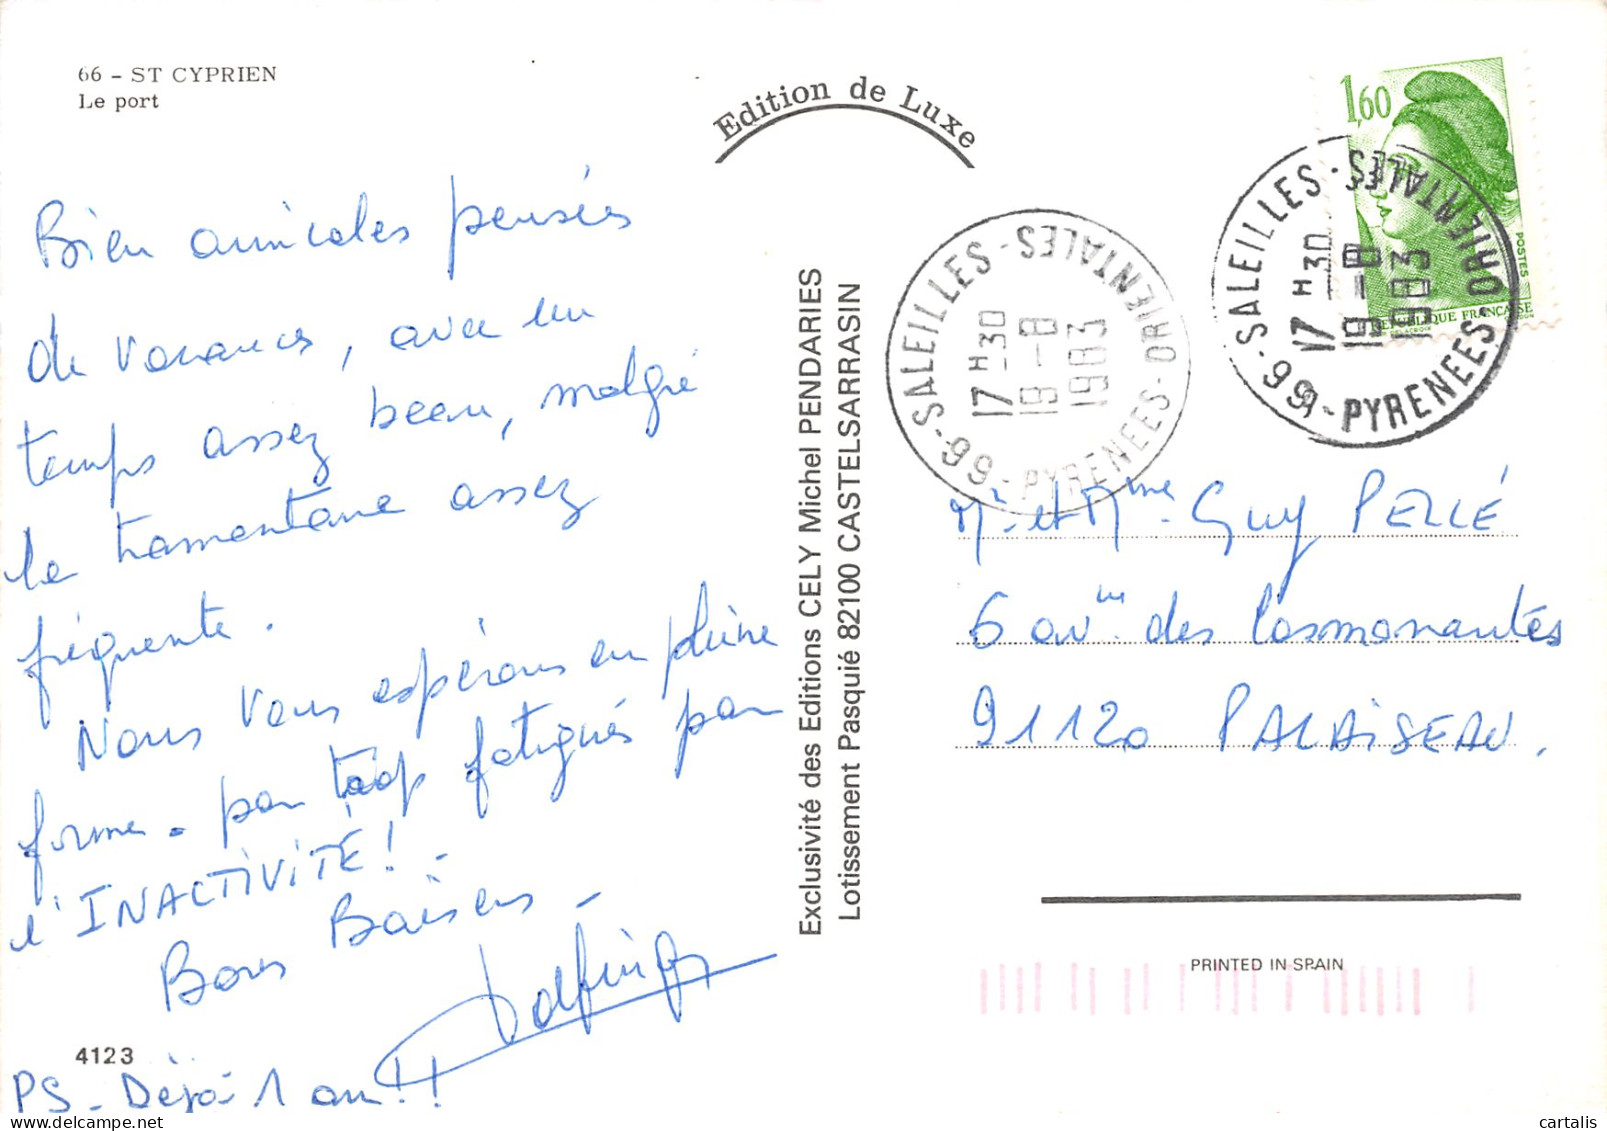 66 - ST CYPRIEN
Le port
Edition de Luxe
1,60
POSTES
REPUBLIQUE FRANÇAISE
SALEILLES - 66 - PYRENEES-ORIENTALES
17 H 30
19-8
1983
SALEILLES - 66 - PYRENEES-ORIENTALES
17 H 30
19-8
1983
Bien amicales pensées
de vacances, avec un
temps assez beau, malgré
la tramontane assez
fréquente.
Nous vous espérons en pleine
forme - pas trop fatigués par
l'INACTIVITÉ! -
Bons Baisers -
PS - Déjà 1 an!!
4123
Exclusivité des Editions CELY Michel PENDARIES
Lotissement Pasquié 82100 CASTELSARRASIN
Mr et Mme Guy PELLÉ
6 av. des Cosmonautes
91120 PALAISEAU.
PRINTED IN SPAIN
cartalis